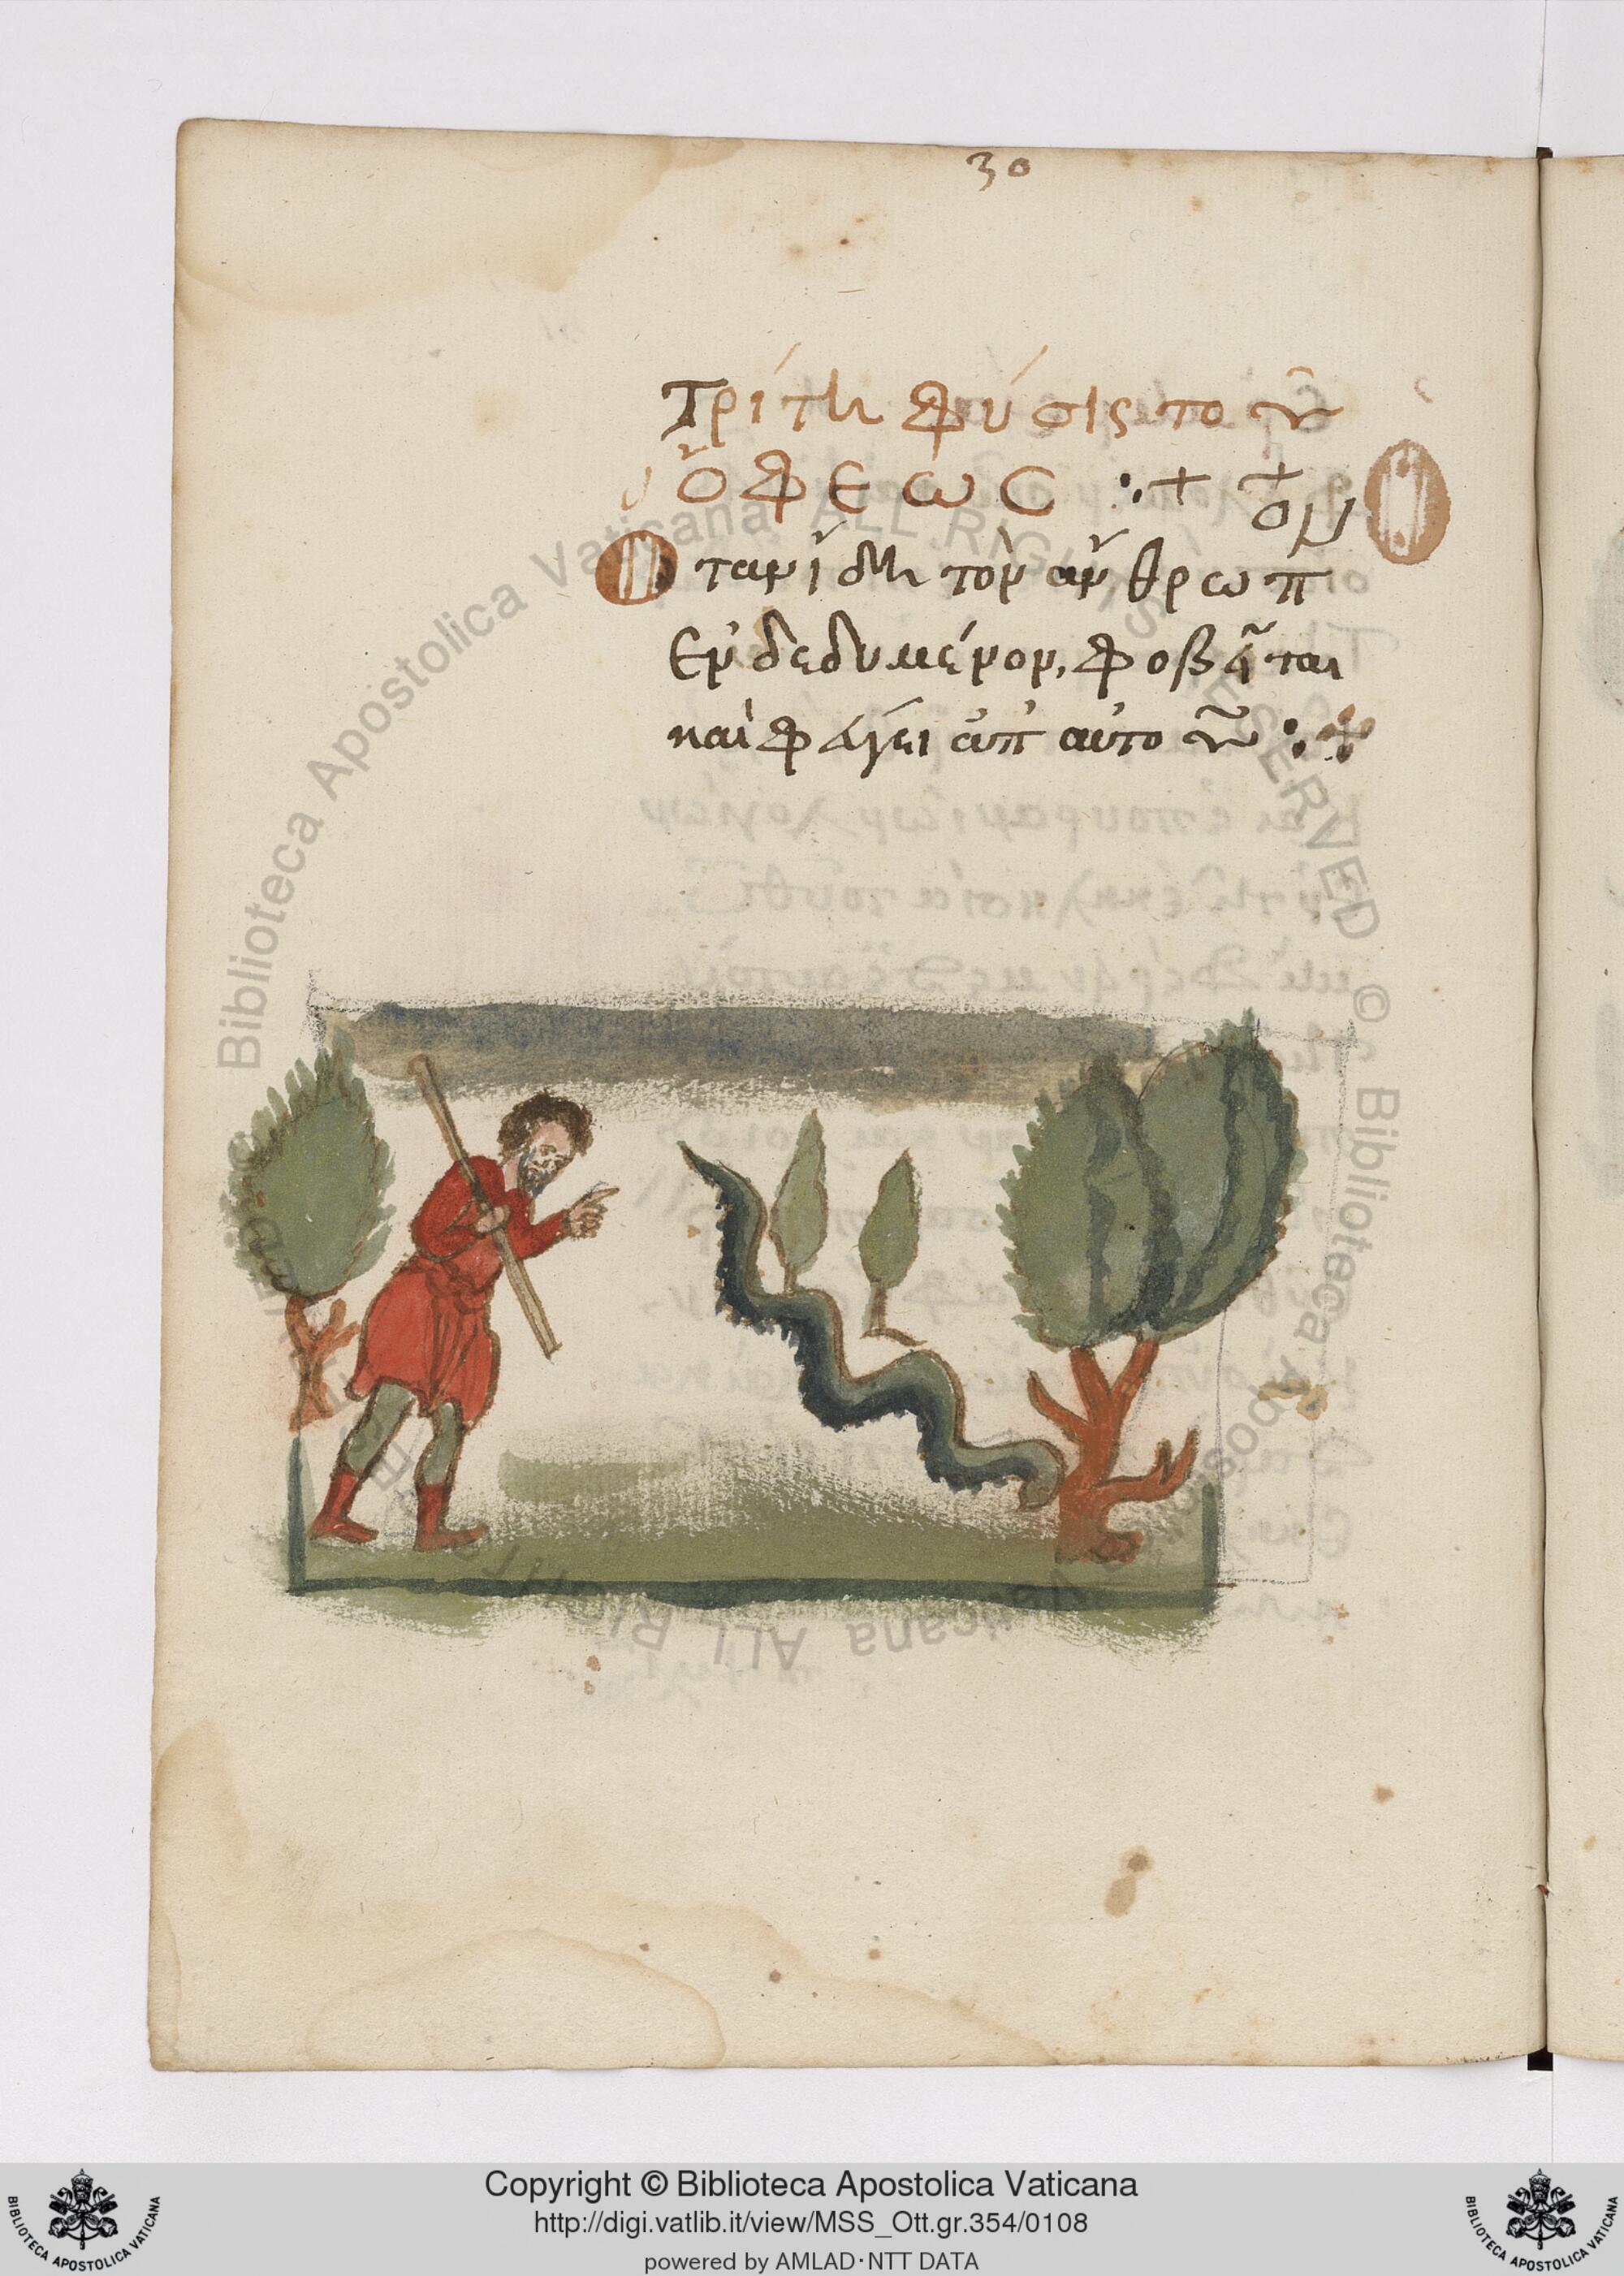 30
Τρίτη φύσις τοῦ
ὄφεως :+
ον
Οταν ίδη τὸν ἄνθρωπ
ἐνδεδυμένον, φοβῆται
καὶ φεύγει ἀπ αὐτοῦ :+
Biblioteca Apostolica Vaticana ALL RIGHTS RESERVED © Biblioteca Apostolica Vaticana ALL RIGHTS RESERVED
Copyright © Biblioteca Apostolica Vaticana
http://digi.vatlib.it/view/MSS_Ott.gr.354/0108
powered by AMLAD·NTT DATA
BIBLIOTECA APOSTOLICA VATICANA
BIBLIOTECA APOSTOLICA VATICANA